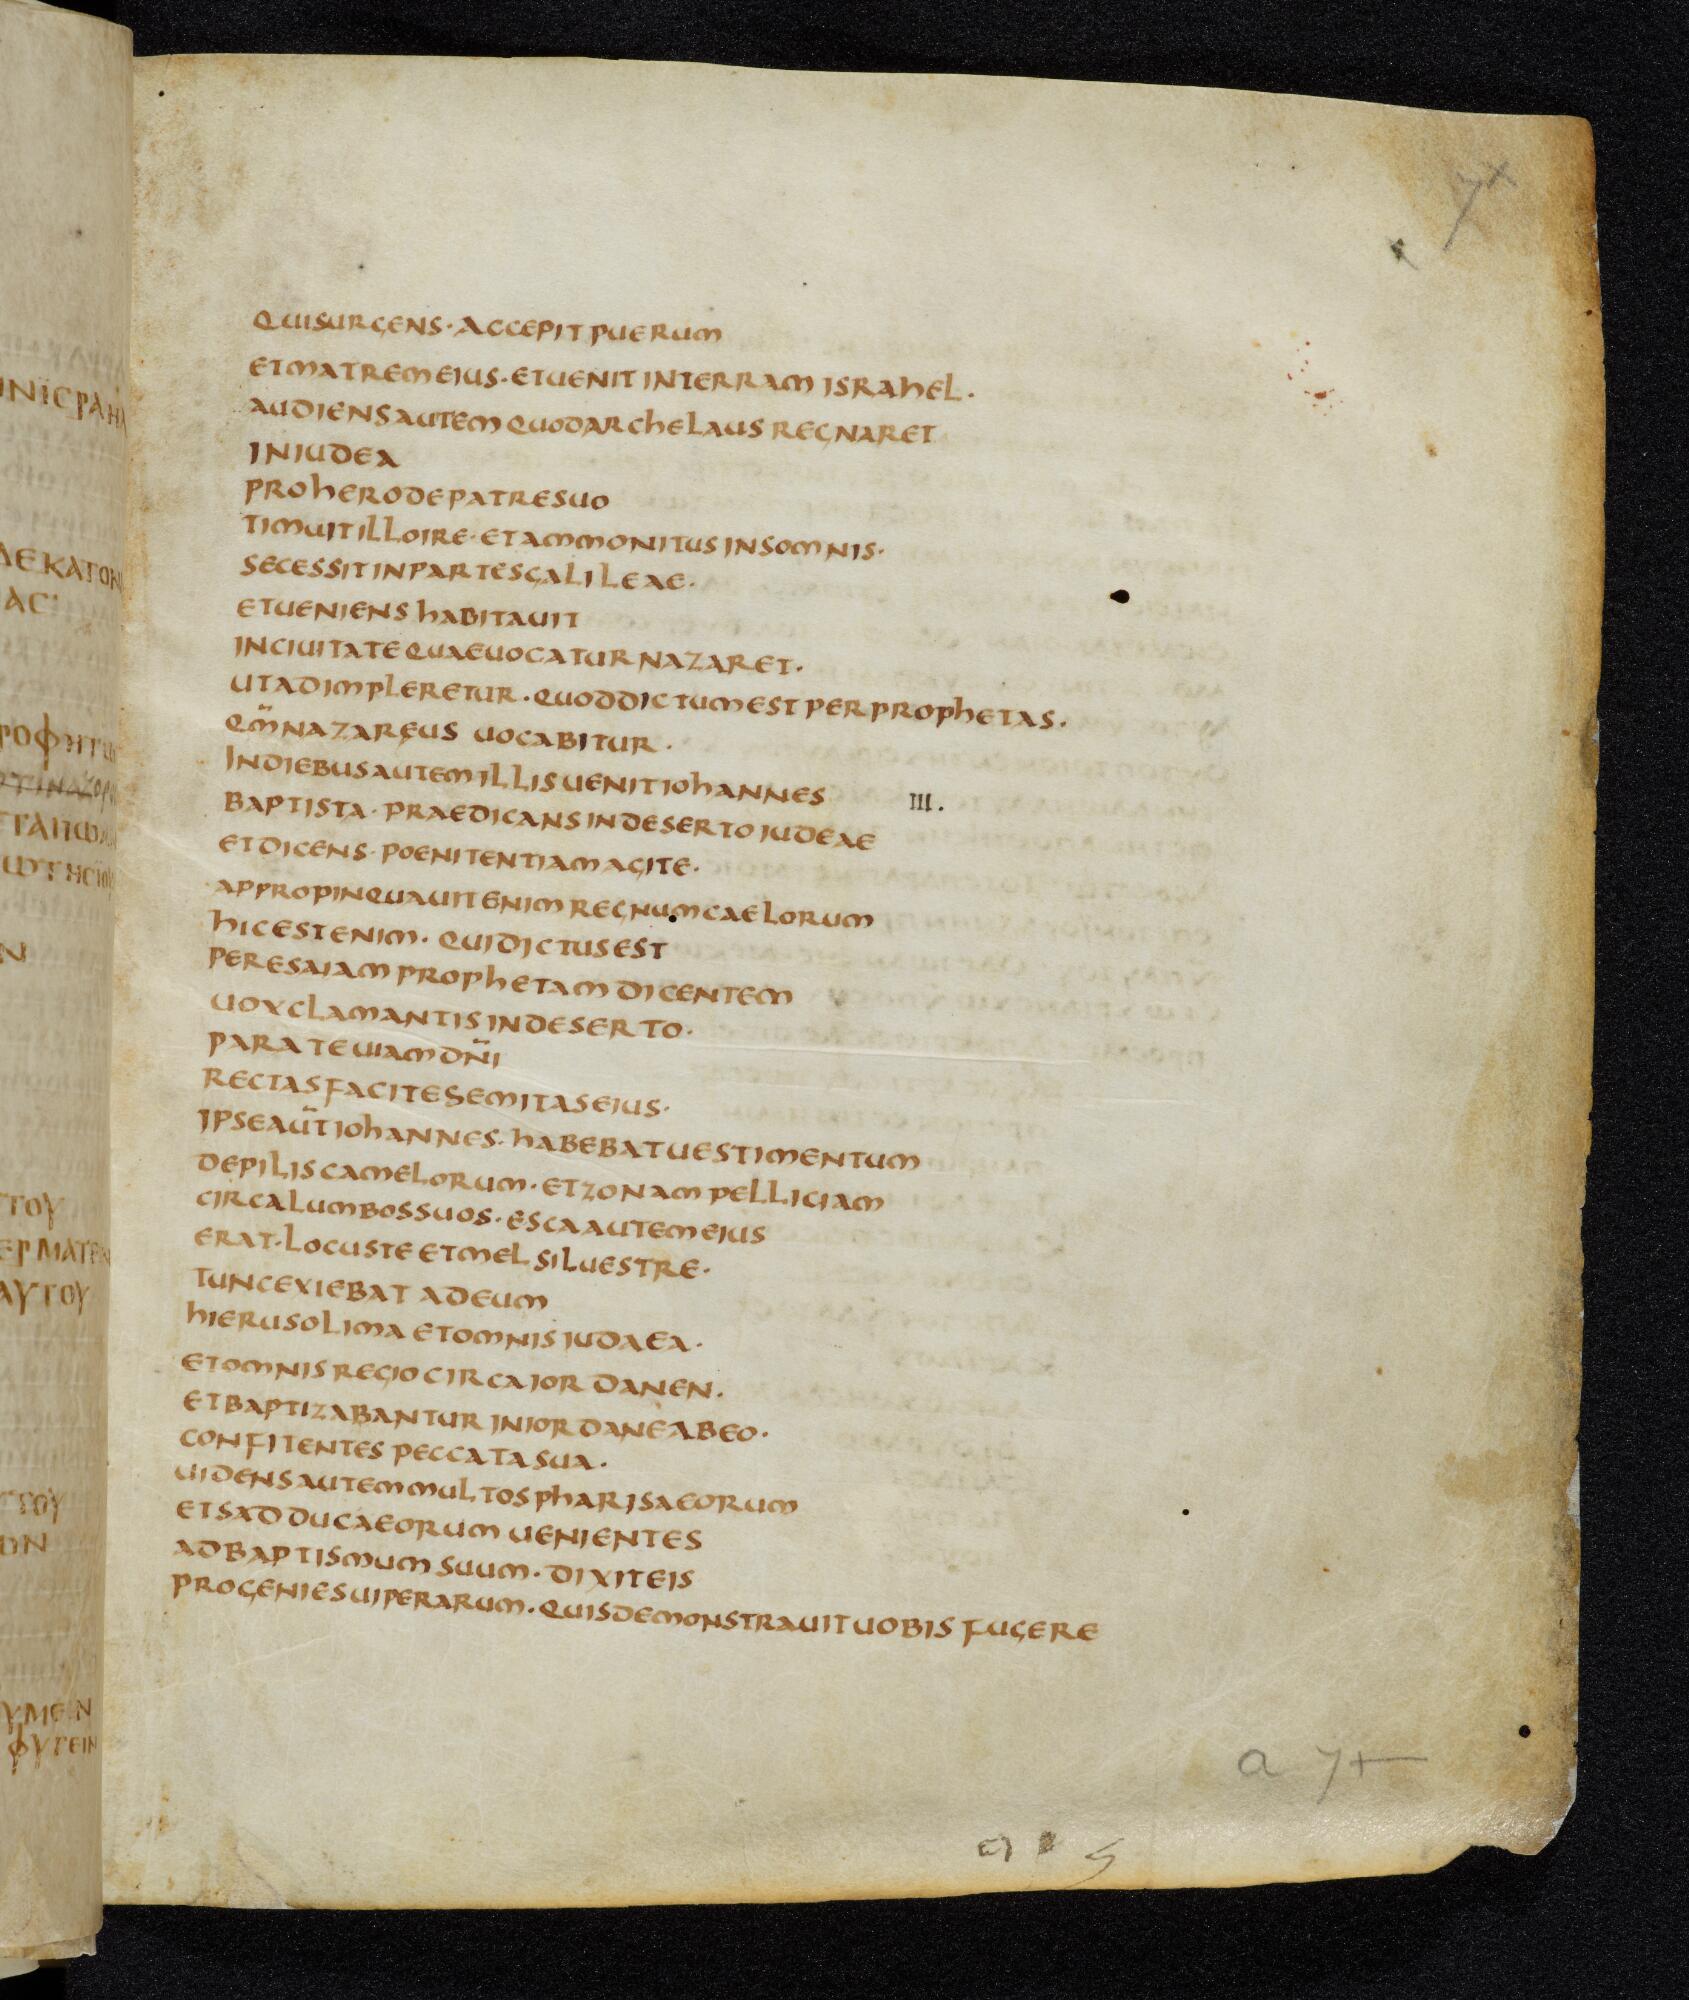 QUISURGENS·ACCEPITPUERUM
ETMATREMEIUS·ETUENITINTERRAM ISRAHEL·
AUDIENSAUTEMQUODARCHELAUS REGNARET
INIUDEA
PROHERODEPATRESUO
TIMUITILLOIRE·ETAMMONITUSINSOMNIS·
SECESSITINPARTESGALILEAE·
ETUENIENS HABITAUIT
INCIUITATEQUAEUOCATURNAZARET·
UTADIMPLERETUR·QUODDICTUMESTPERPROPHETAS·
QM̅NAZAREUS UOCABITUR·
INDIEBUSAUTEMILLISUENITIOHANNES III·
BAPTISTA·PRAEDICANSINDESERTOIUDEAE
ETDICENS·POENITENTIAMAGITE·
APPROPINQUAUITENIMREGNUMCAELORUM
HICESTENIM·QUIDICTUSEST
PERESAIAMPROPHETAMDICENTEM
UOXCLAMANTISINDESERTO·
PARATEUIAMDN̅I
RECTASFACITESEMITASEIUS·
IPSEAUT̅IOHANNES·HABEBATUESTIMENTUM
DEPILISCAMELORUM·ETZONAMPELLICIAM
CIRCALUMBOSSUOS·ESCAAUTEMEIUS
ERAT·LOCUSTEETMELSILUESTRE·
TUNCEXIEBAT ADEUM
HIERUSOLIMA ETOMNISIUDAEA·
ETOMNISREGIOCIRCAIORDANEN·
ETBAPTIZABANTUR INIORDANEABEO·
CONFITENTESPECCATASUA·
UIDENSAUTEMMULTOSPHARISAEORUM
ETSADDUCAEORUM UENIENTES
ADBAPTISMUMSUUM·DIXITEIS
PROGENIESUIPERARUM·QUISDEMONSTRAUITUOBIS FUGERE